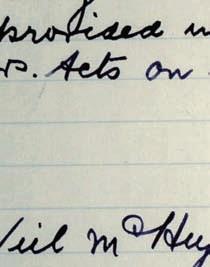 provided
s. Acts on
Neil Mc Hug